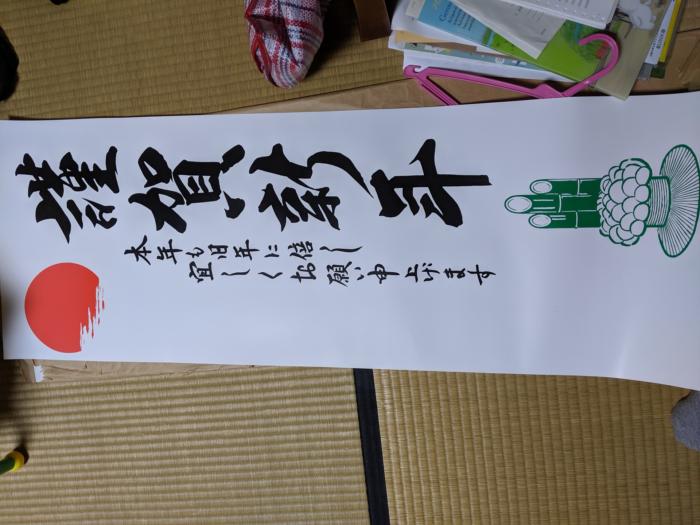 謹賀新年
本年も旧年に倍し
宜しくお願い申し上げます